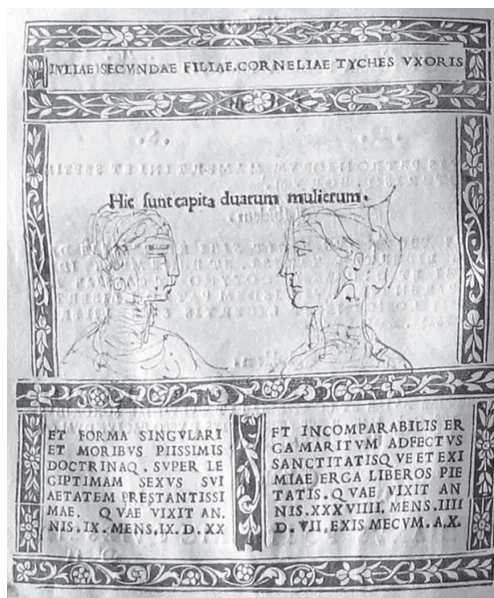 IVLIAE SECVNDAE FILIAE.CORNELIAE TYCHES VXORIS
Hic sunt capita duarum mulierum.
ET FORMA SINGVLARI
ET MORIBVS PIISSIMIS
DOCTRINAQ. SVPER LE
GIPTIMAM SEXVS SVI
AETATEM PRESTANTISSI
MAE. QVAE VIXIT AN.
NIS.IX.MENS,IX.D.XX
ET INCOMPARABILIS ER
GA MARITVM ADFECTVS
SANCTITATISQ VE ET EXI
MIAE ERGA LIBEROS PIE
TATIS. Q VAE VIXIT AN
NIS.XXXVIIII. MENS.IIII
D.VII. EXIS MECVM.A,X.